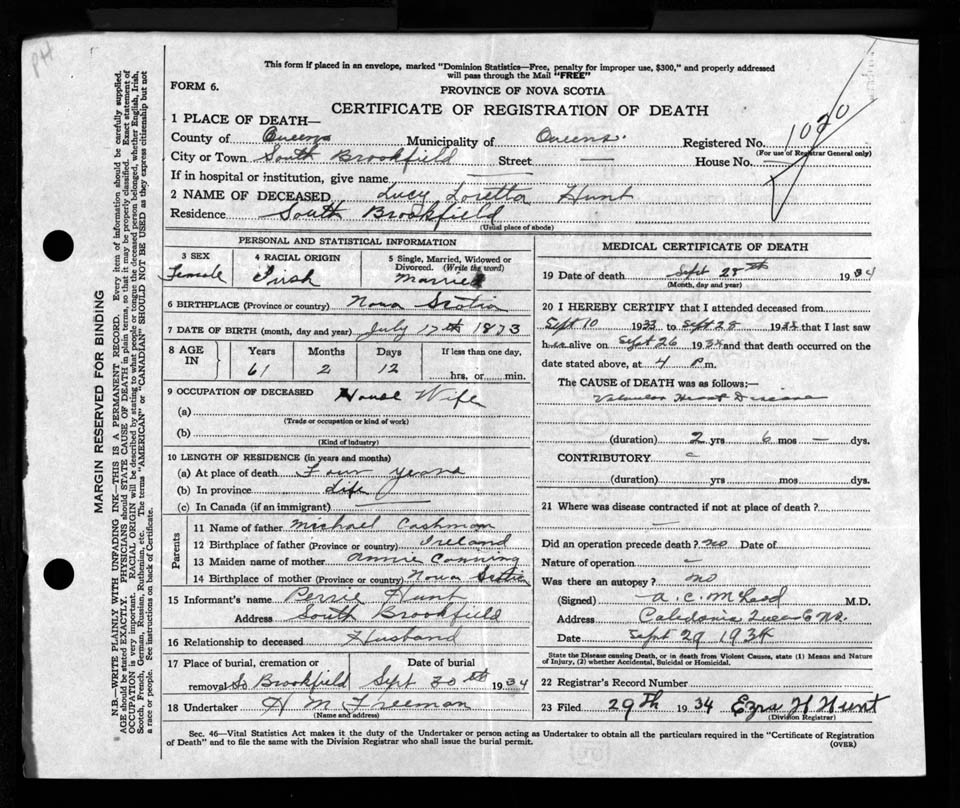 PH
This form if placed in an envelope, marked "Dominion Statistics—Free, penalty for improper use, $300," and properly addressed
will pass through the Mail "FREE"
FORM 6.
PROVINCE OF NOVA SCOTIA
CERTIFICATE OF REGISTRATION OF DEATH
1020
1 PLACE OF DEATH—
County of Queens Municipality of Queens. Registered No.
(For use of Registrar General only)
City or Town South Brookfield Street — House No.
If in hospital or institution, give name
2 NAME OF DECEASED Lucy Loretta Hunt
Residence South Brookfield
(Usual place of abode)
PERSONAL AND STATISTICAL INFORMATION
3 SEX 4 RACIAL ORIGIN 5 Single, Married, Widowed or Divorced. (Write the word)
Female Irish Married
6 BIRTHPLACE (Province or country) Nova Scotia
7 DATE OF BIRTH (month, day and year) July 17th 1873
8 AGE IN Years Months Days If less than one day,
61 2 12 hrs. or min.
9 OCCUPATION OF DECEASED House Wife
(a)
(Trade or occupation or kind of work)
(b)
(Kind of industry)
10 LENGTH OF RESIDENCE (in years and months)
(a) At place of death Four years
(b) In province Life
(c) In Canada (if an immigrant) —
Parents
11 Name of father Michael Cashman
12 Birthplace of father (Province or country) Ireland
13 Maiden name of mother Annie Canning
14 Birthplace of mother (Province or country) Nova Scotia
15 Informant's name Perrie Hunt
Address South Brookfield
16 Relationship to deceased Husband
17 Place of burial, cremation or removal Date of burial
So Brookfield Sept 30th 1934
18 Undertaker H M Freeman
(Name and address)
MEDICAL CERTIFICATE OF DEATH
19 Date of death Sept 28th 1934
(Month, day and year)
20 I HEREBY CERTIFY that I attended deceased from
Sept 10 1933 to Sept 28 1934 that I last saw
her alive on Sept 26 1934 and that death occurred on the
date stated above, at 4 P m.
The CAUSE OF DEATH was as follows:—
Valvular Heart Disease
(duration) 2 yrs 6 mos — dys.
CONTRIBUTORY
(duration) yrs mos dys.
21 Where was disease contracted if not at place of death?
—
Did an operation precede death? no Date of
Nature of operation —
Was there an autopsy? no
(Signed) A. C. McLeod M.D.
Address Caledonia Queens Co N.S.
Date Sept 29 1934
State the Disease causing Death, or in death from Violent Causes, state (1) Means and Nature
of Injury, (2) whether Accidental, Suicidal or Homicidal.
22 Registrar's Record Number
23 Filed 29th 1934 Ezra H Hunt
(Division Registrar)
Sec. 46—Vital Statistics Act makes it the duty of the Undertaker or person acting as Undertaker to obtain all the particulars required in the "Certificate of Registration
of Death" and to file the same with the Division Registrar who shall issue the burial permit.
(OVER)
MARGIN RESERVED FOR BINDING
N.B.—WRITE PLAINLY WITH UNFADING INK—THIS IS A PERMANENT RECORD. Every item of information should be carefully supplied.
AGE should be stated EXACTLY. PHYSICIANS should STATE CAUSE OF DEATH in plain terms, so that it may be properly classified. Exact statement of
OCCUPATION is very important. RACIAL ORIGIN will be described by stating to what people or tongue the deceased person belonged, whether English, Irish,
Scotch, French, German, Russian, Ruthenian, etc. The terms "AMERICAN" or "CANADIAN" SHOULD NOT BE USED as they express citizenship but not
a race or people. See instructions on back of Certificate.